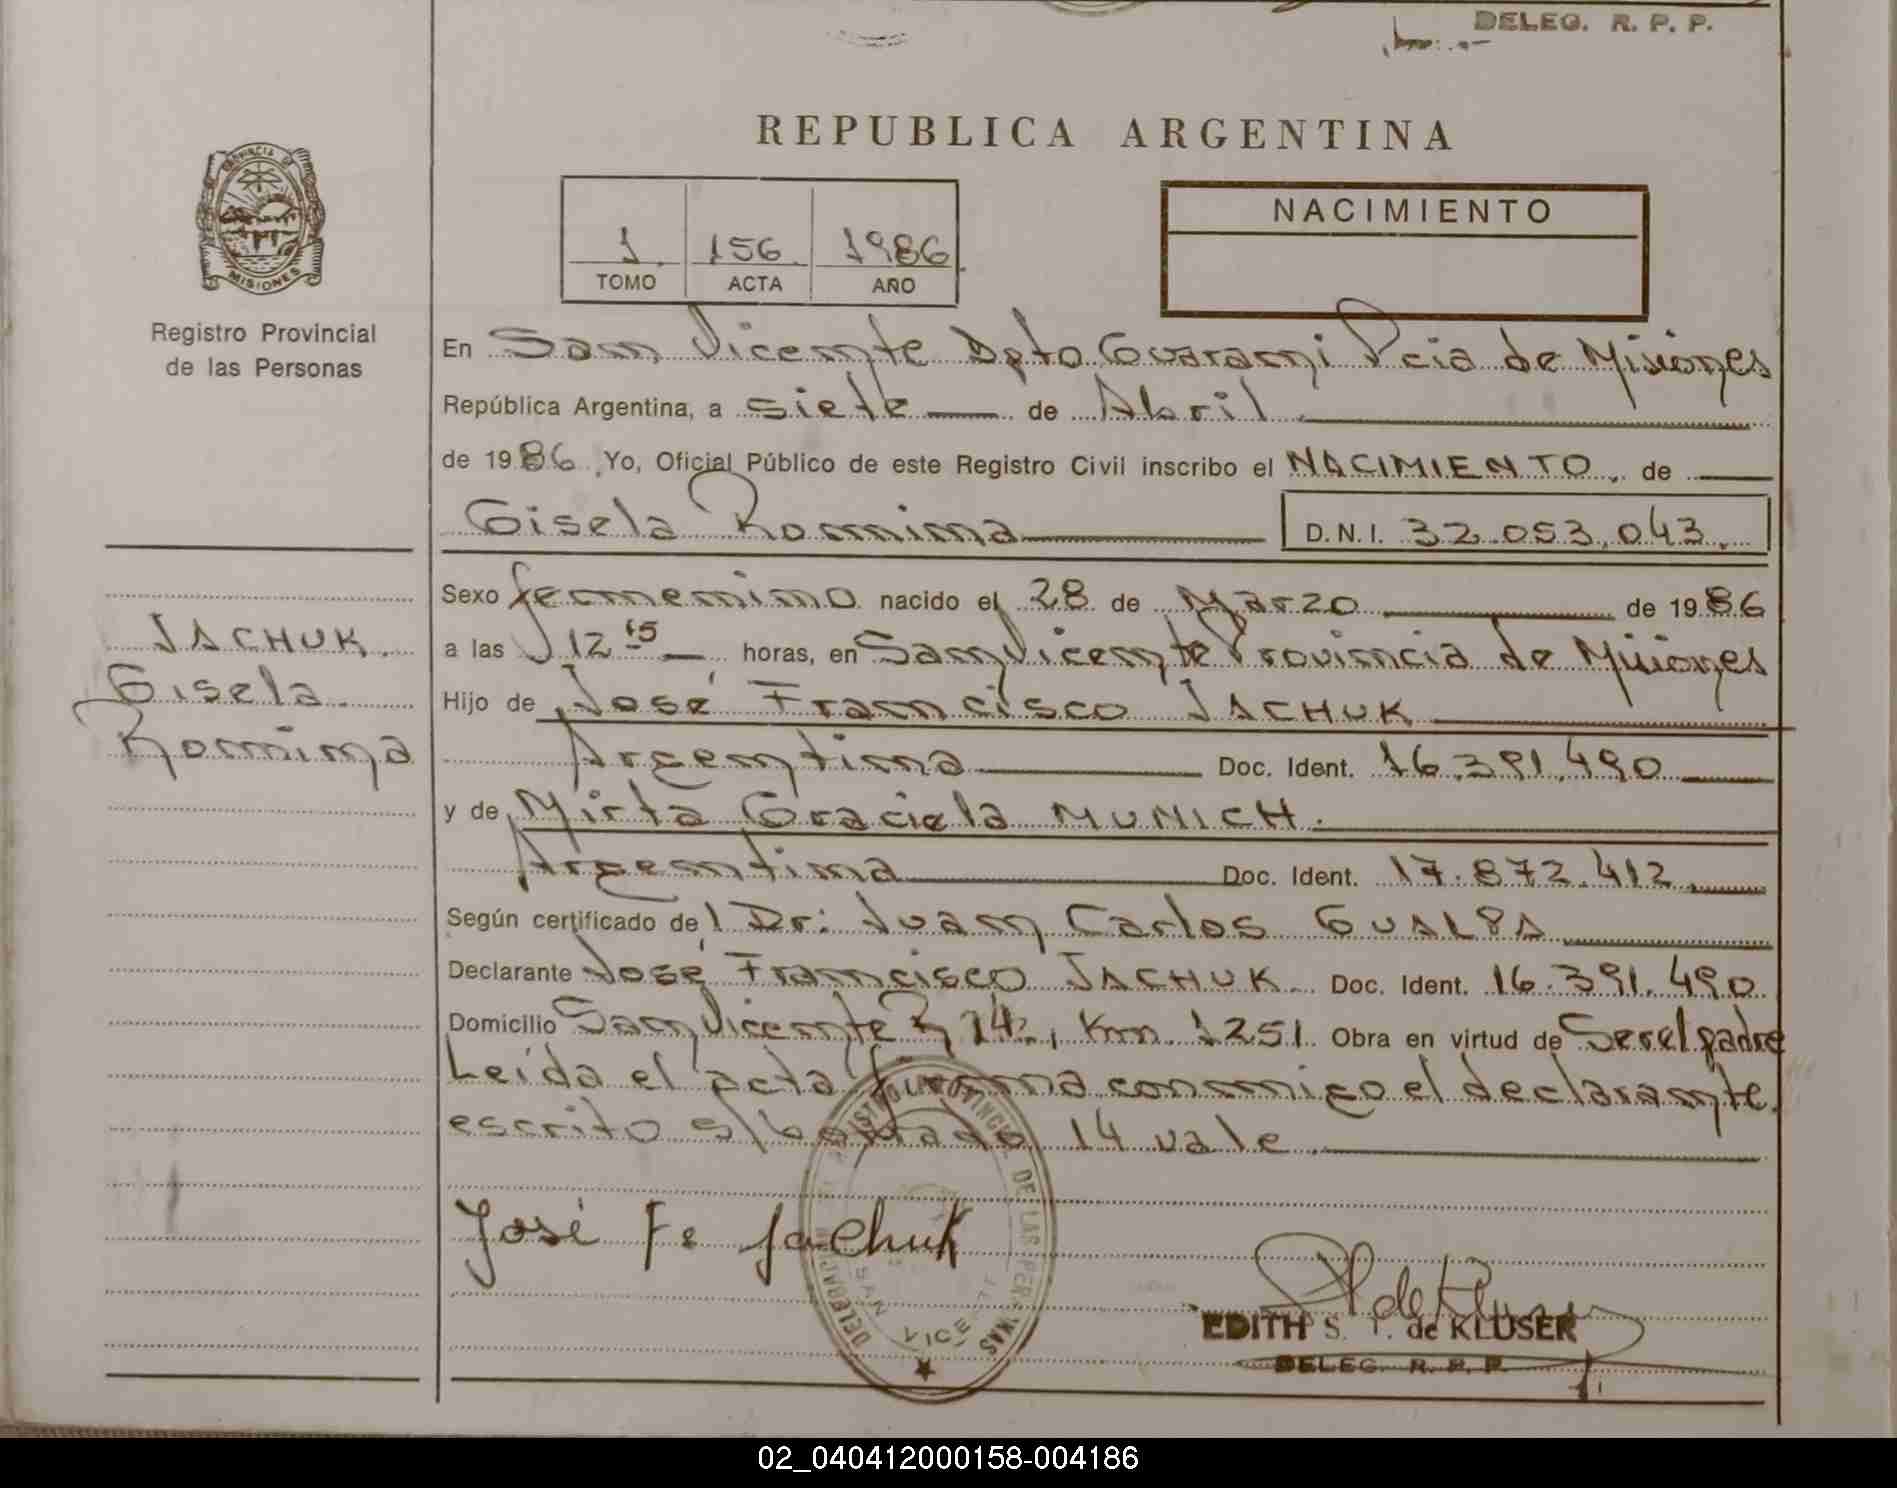 DELEG. R. P. P.
REPUBLICA ARGENTINA
PROVINCIA DE
MISIONES
Registro Provincial
de las Personas
1 156 1986
TOMO ACTA AÑO
NACIMIENTO
En San Vicente Dpto Guarani Pcia de Misiones
República Argentina, a siete de Abril
de 1986 Yo, Oficial Público de este Registro Civil inscribo el NACIMIENTO de
Gisela Romina D.N.I. 32.053.043.
JACHUK
Gisela
Romina
Sexo femenino nacido el 28 de Marzo de 1986
a las 12 15 horas, en San Vicente Provincia de Misiones
Hijo de José Francisco JACHUK
Argentina Doc. Ident. 16.391.490
y de Mirta Graciela MUNICH.
Argentina Doc. Ident. 17.872.412.
Según certificado del Dr: Juan Carlos
Declarante José Francisco JACHUK Doc. Ident. 16.391.490
Domicilio San Vicente 14, Km. 1251 Obra en virtud de Ser el padre
Leída el acta firma conmigo el declarante.
escrito s/borrado 14 vale
José Fco Jachuk
DELEGACION REGISTRO PROVINCIAL DE LAS PERSONAS
SAN VICENTE
EDITH S. T. de KLUSER
DELEG. R. P. P.
02_040412000158-004186